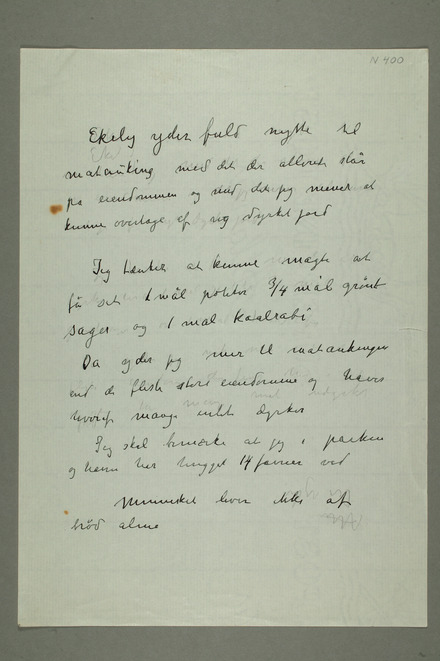 N 400
Ekely yder fuld nytte til
matauking med det der allerede står
på eiendommen og med det jeg mener at
kunne overtage af ny dyrket jord
Jeg tænker at kunne magte at
få sat 1 mål poteter 3/4 mål grønt
sager og 1 mål kaalrabi
Da yder jeg mer til mataukingen
end de fleste store eiendomme og haver
hvoraf mange intet dyrker
Jeg skal bemærke at jeg i parken
og haven har hugget 14 favner ved
Mennesket lever ikke af
brød alene